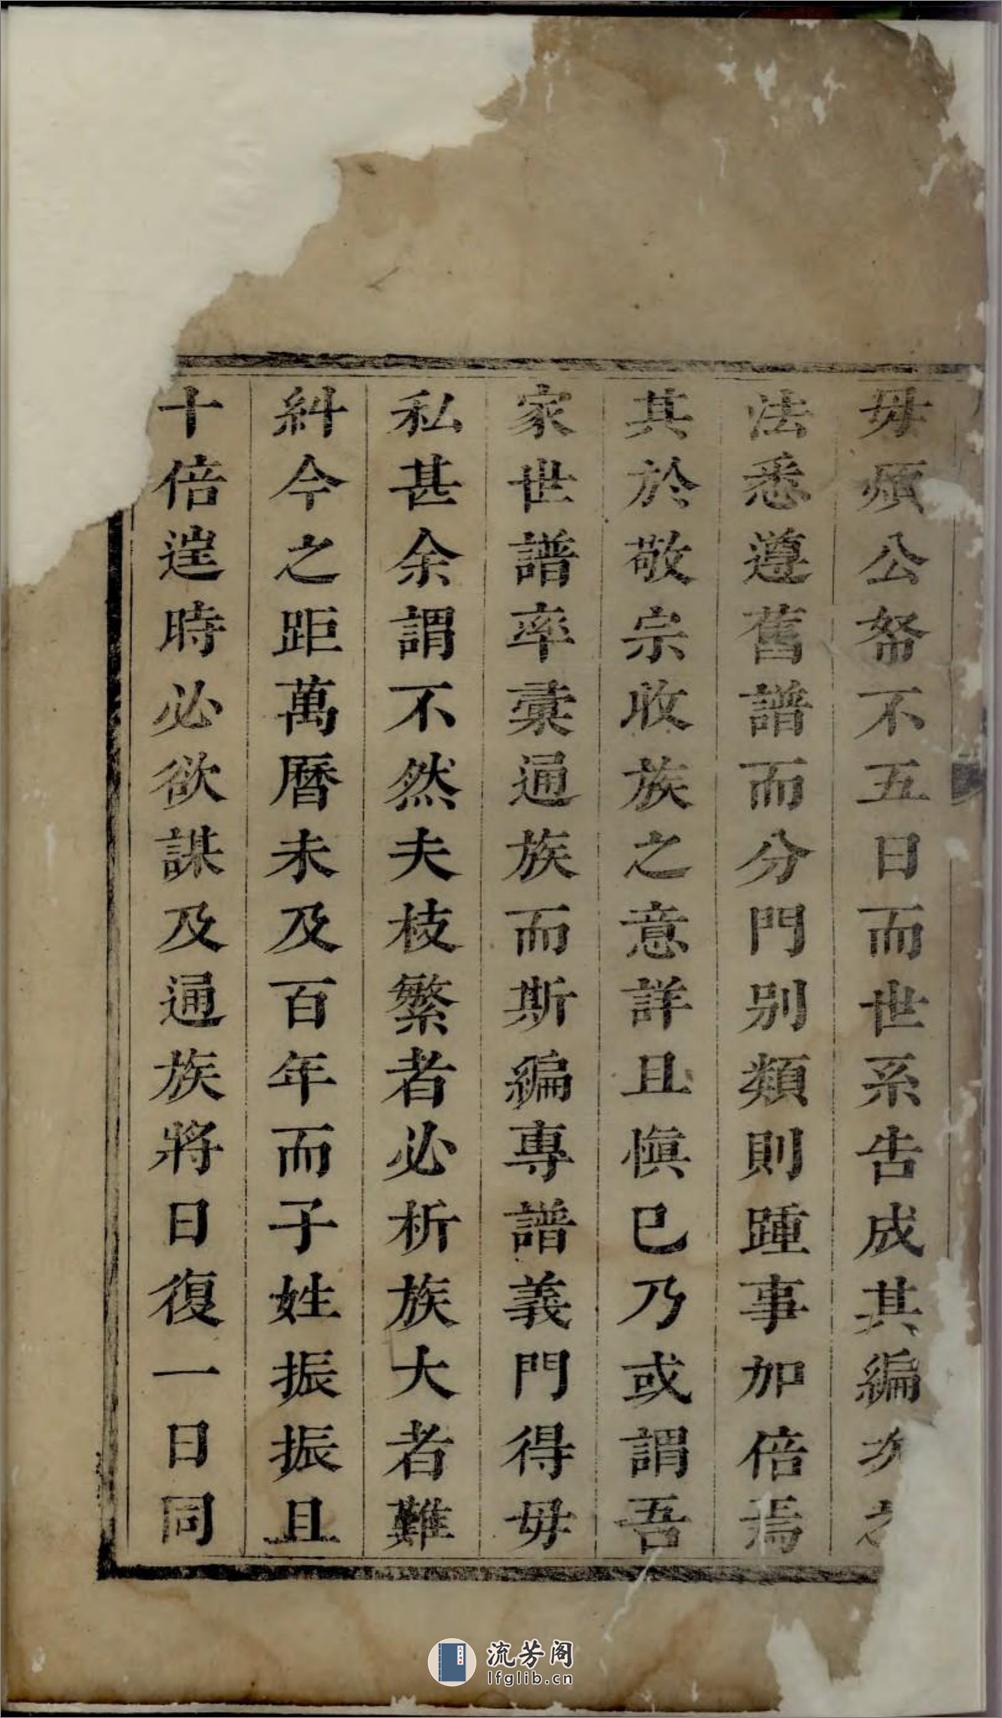 毋煩公帑不五日而世系告成其編次之
法悉遵舊譜而分門别類則踵事加倍焉
其於敬宗收族之意詳且慎已乃或謂吾
家世譜率彙通族而斯編專譜義門得毋
私甚余謂不然夫枝繁者必析族大者難
糾今之距萬曆未及百年而子姓振振且
十倍逞時必欲謀及通族將日復一日同
流芳阁
lfglib.cn